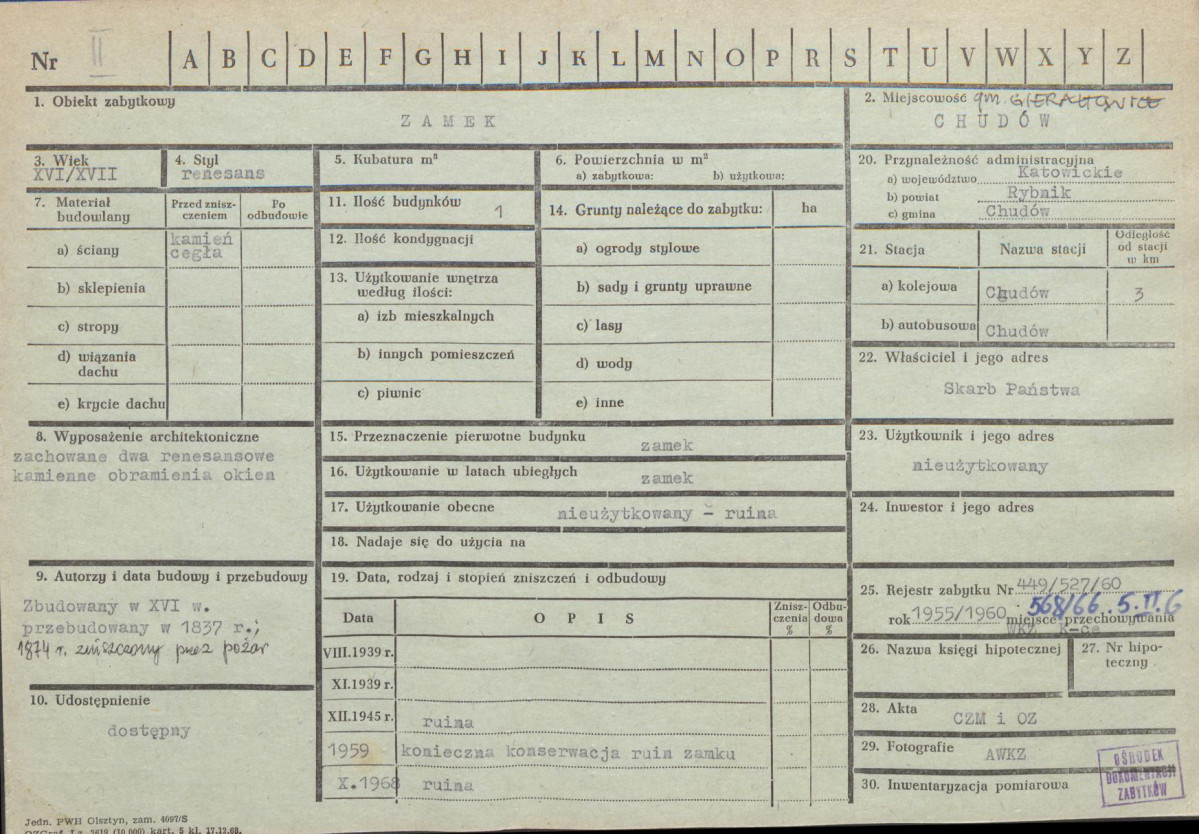 Nr II A B C D E F G H I J K L M N O P R S T U V W X Y Z
1. Obiekt zabytkowy
ZAMEK
2. Miejscowość gm. GIERAŁTOWICE
CHUDÓW
3. Wiek
XVI/XVII
4. Styl
renesans
5. Kubatura m³
6. Powierzchnia w m²
a) zabytkowa: b) użytkowa:
20. Przynależność administracyjna
a) województwo Katowickie
b) powiat Rybnik
c) gmina Chudów
7. Materiał
budowlany
Przed znisz-
czeniem
Po
odbudowie
a) ściany kamień
cegła
b) sklepienia
c) stropy
d) wiązania
dachu
e) krycie dachu
11. Ilość budynków 1
12. Ilość kondygnacji
13. Użytkowanie wnętrza
według ilości:
a) izb mieszkalnych
b) innych pomieszczeń
c) piwnic
14. Grunty należące do zabytku: ha
a) ogrody stylowe
b) sady i grunty uprawne
c) lasy
d) wody
e) inne
21. Stacja Nazwa stacji
Odległość
od stacji
w km
a) kolejowa Chudów 3
b) autobusowa Chudów
22. Właściciel i jego adres
Skarb Państwa
8. Wyposażenie architektoniczne
zachowane dwa renesansowe
kamienne obramienia okien
15. Przeznaczenie pierwotne budynku zamek
16. Użytkowanie w latach ubiegłych zamek
17. Użytkowanie obecne nieużytkowany - ruina
18. Nadaje się do użycia na
23. Użytkownik i jego adres
nieużytkowany
24. Inwestor i jego adres
9. Autorzy i data budowy i przebudowy
Zbudowany w XVI w.
przebudowany w 1837 r.;
1874 r. zniszczony przez pożar
10. Udostępnienie
dostępny
19. Data, rodzaj i stopień zniszczeń i odbudowy
Data OPIS
Znisz-
czenia
%
Odbu-
dowa
%
VIII.1939 r.
XI.1939 r.
XII.1945 r. ruina
1959 konieczna konserwacja ruin zamku
X.1968 ruina
25. Rejestr zabytku Nr 449/527/60
568/66 5.II.6
rok 1955/1960 miejsce przechowywania
WKZ K-ce
26. Nazwa księgi hipotecznej
27. Nr hipo-
teczny
28. Akta CZM i OZ
29. Fotografie AWKZ
30. Inwentaryzacja pomiarowa
OŚRODEK
DOKUMENTACJI
ZABYTKÓW
Jedn. PWH Olsztyn, zam. 4097/S
OZGraf. Lz. 2619 (10.000) kart. 5 kl. 17.12.68.